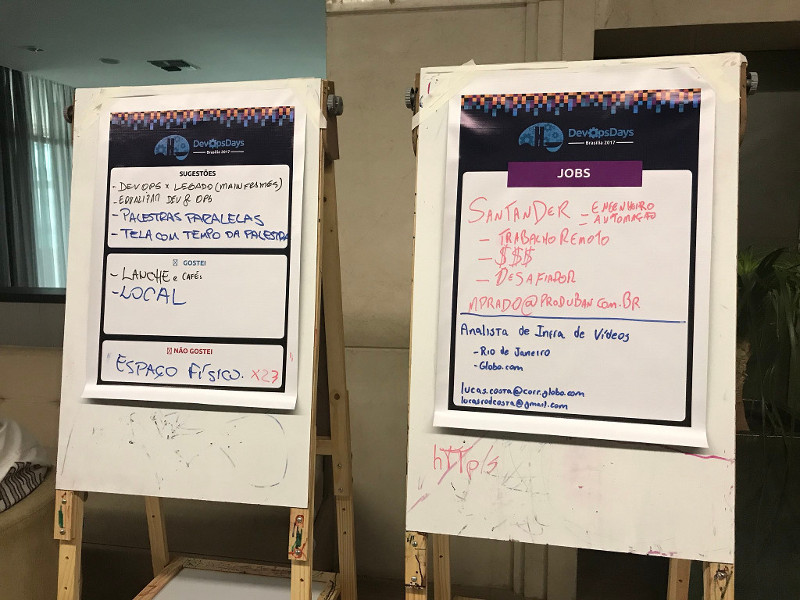 DevOpsDays
Brasília 2017
SUGESTÕES
- DEVOPS x LEGADO (MAINFRAMES)
- EQUALIZAR DEV & OPS
- PALESTRAS PARALELAS
- TELA COM TEMPO DA PALESTRA
GOSTEI
- LANCHE e CAFÉ;
- LOCAL
NÃO GOSTEI
"ESPAÇO FÍSICO. x23"
DevOpsDays
Brasília 2017
JOBS
SANTANDER - ENGENHEIRO
AUTOMAÇÃO
- TRABALHO REMOTO
- $$$
- DESAFIADOR
MPRADO@PRODUBAN.COM.BR
Analista de Infra de Vídeos
- Rio de Janeiro
- Globo.com
lucas.costa@corr.globo.com
lucasrodcosta@gmail.com
https